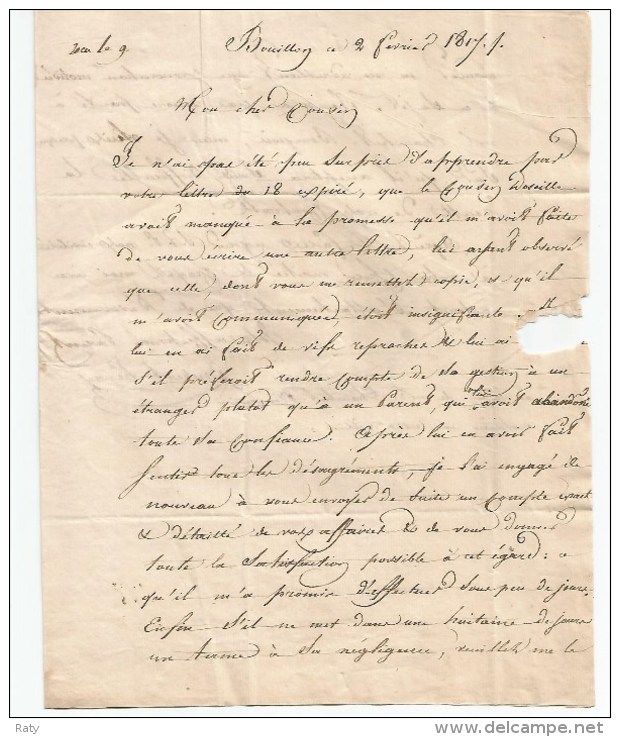 Bouillon ce 2 février 1817.
Mon cher Cousin
Je n'ai pas été peu surprise d'apprendre par
votre lettre du 18 expiré, que le Cousin
avoit manqué à la promesse qu'il m'avoit faite
de vous écrire une autre lettre, lui ayant observé
que celle, dont vous me remettez copie, & qu'il
m'avoit communiquée étoit insignifiante
lui en ai fait de vifs reproches & lui ai
s'il préferoit rendre Compte de sa gestion à un
étranger plutot qu'à un Parent, qui lui avoit abandonné
toute sa Confiance. Après lui en avoir fait
sentir tous les désagréments, je l'ai engagé de
nouveau à vous envoyer de suite un Compte exact
& détaillé de vos affaires & de vous donner
toute la satisfaction possible à cet égard : ce
qu'il m'a promis d'effectuer sous peu de jours.
Enfin s'il ne met dans une huitaine de jours
un terme à sa négligence, veuillez me le
Raty
www.delcampe.net